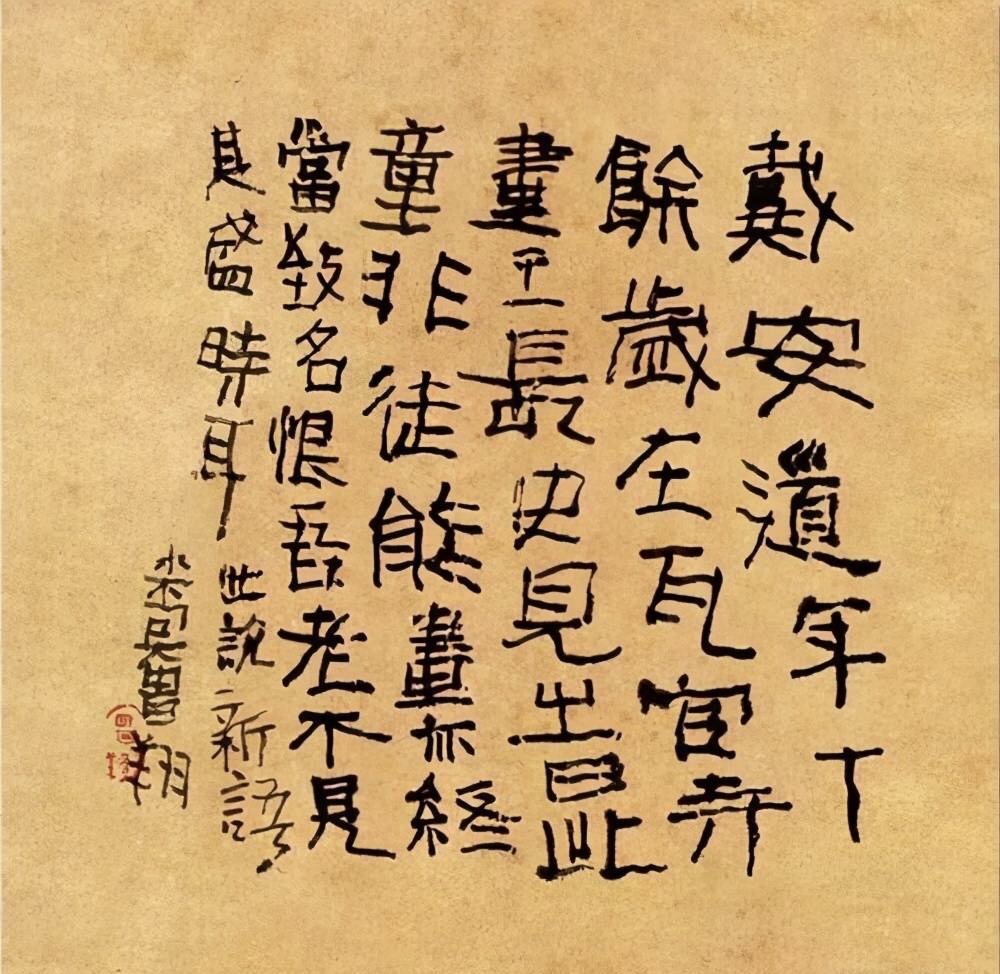 戴安道年十
餘歲在瓦官寺
畫王長史見之曰此
童非徒能畫亦終
當致名恨吾老不見
其盛時耳 世說新語
曾翔
曾翔